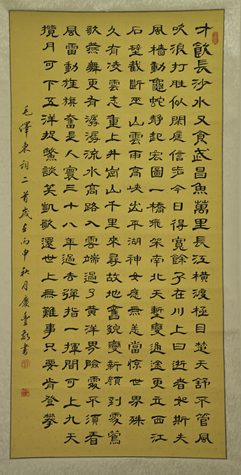 才飲長沙水又食武昌魚萬里長江橫渡極目楚天舒不管風
吹浪打勝似閑庭信步今日得寬餘子在川上曰逝者如斯夫
風檣動龜蛇靜起宏圖一橋飛架南北天塹變通途更立西江
石壁截斷巫山雲雨高峽出平湖神女應無恙當驚世界殊
久有凌雲志重上井岡山千里來尋故地舊貌變新顏到處鶯
歌燕舞更有潺潺流水高路入雲端過了黃洋界險處不須看
風雷動旌旗奮是人寰三十八年過去彈指一揮間可上九天
攬月可下五洋捉鱉談笑凱歌還世上無難事只要肯登攀
毛澤東詞二首歲在丙申秋月書